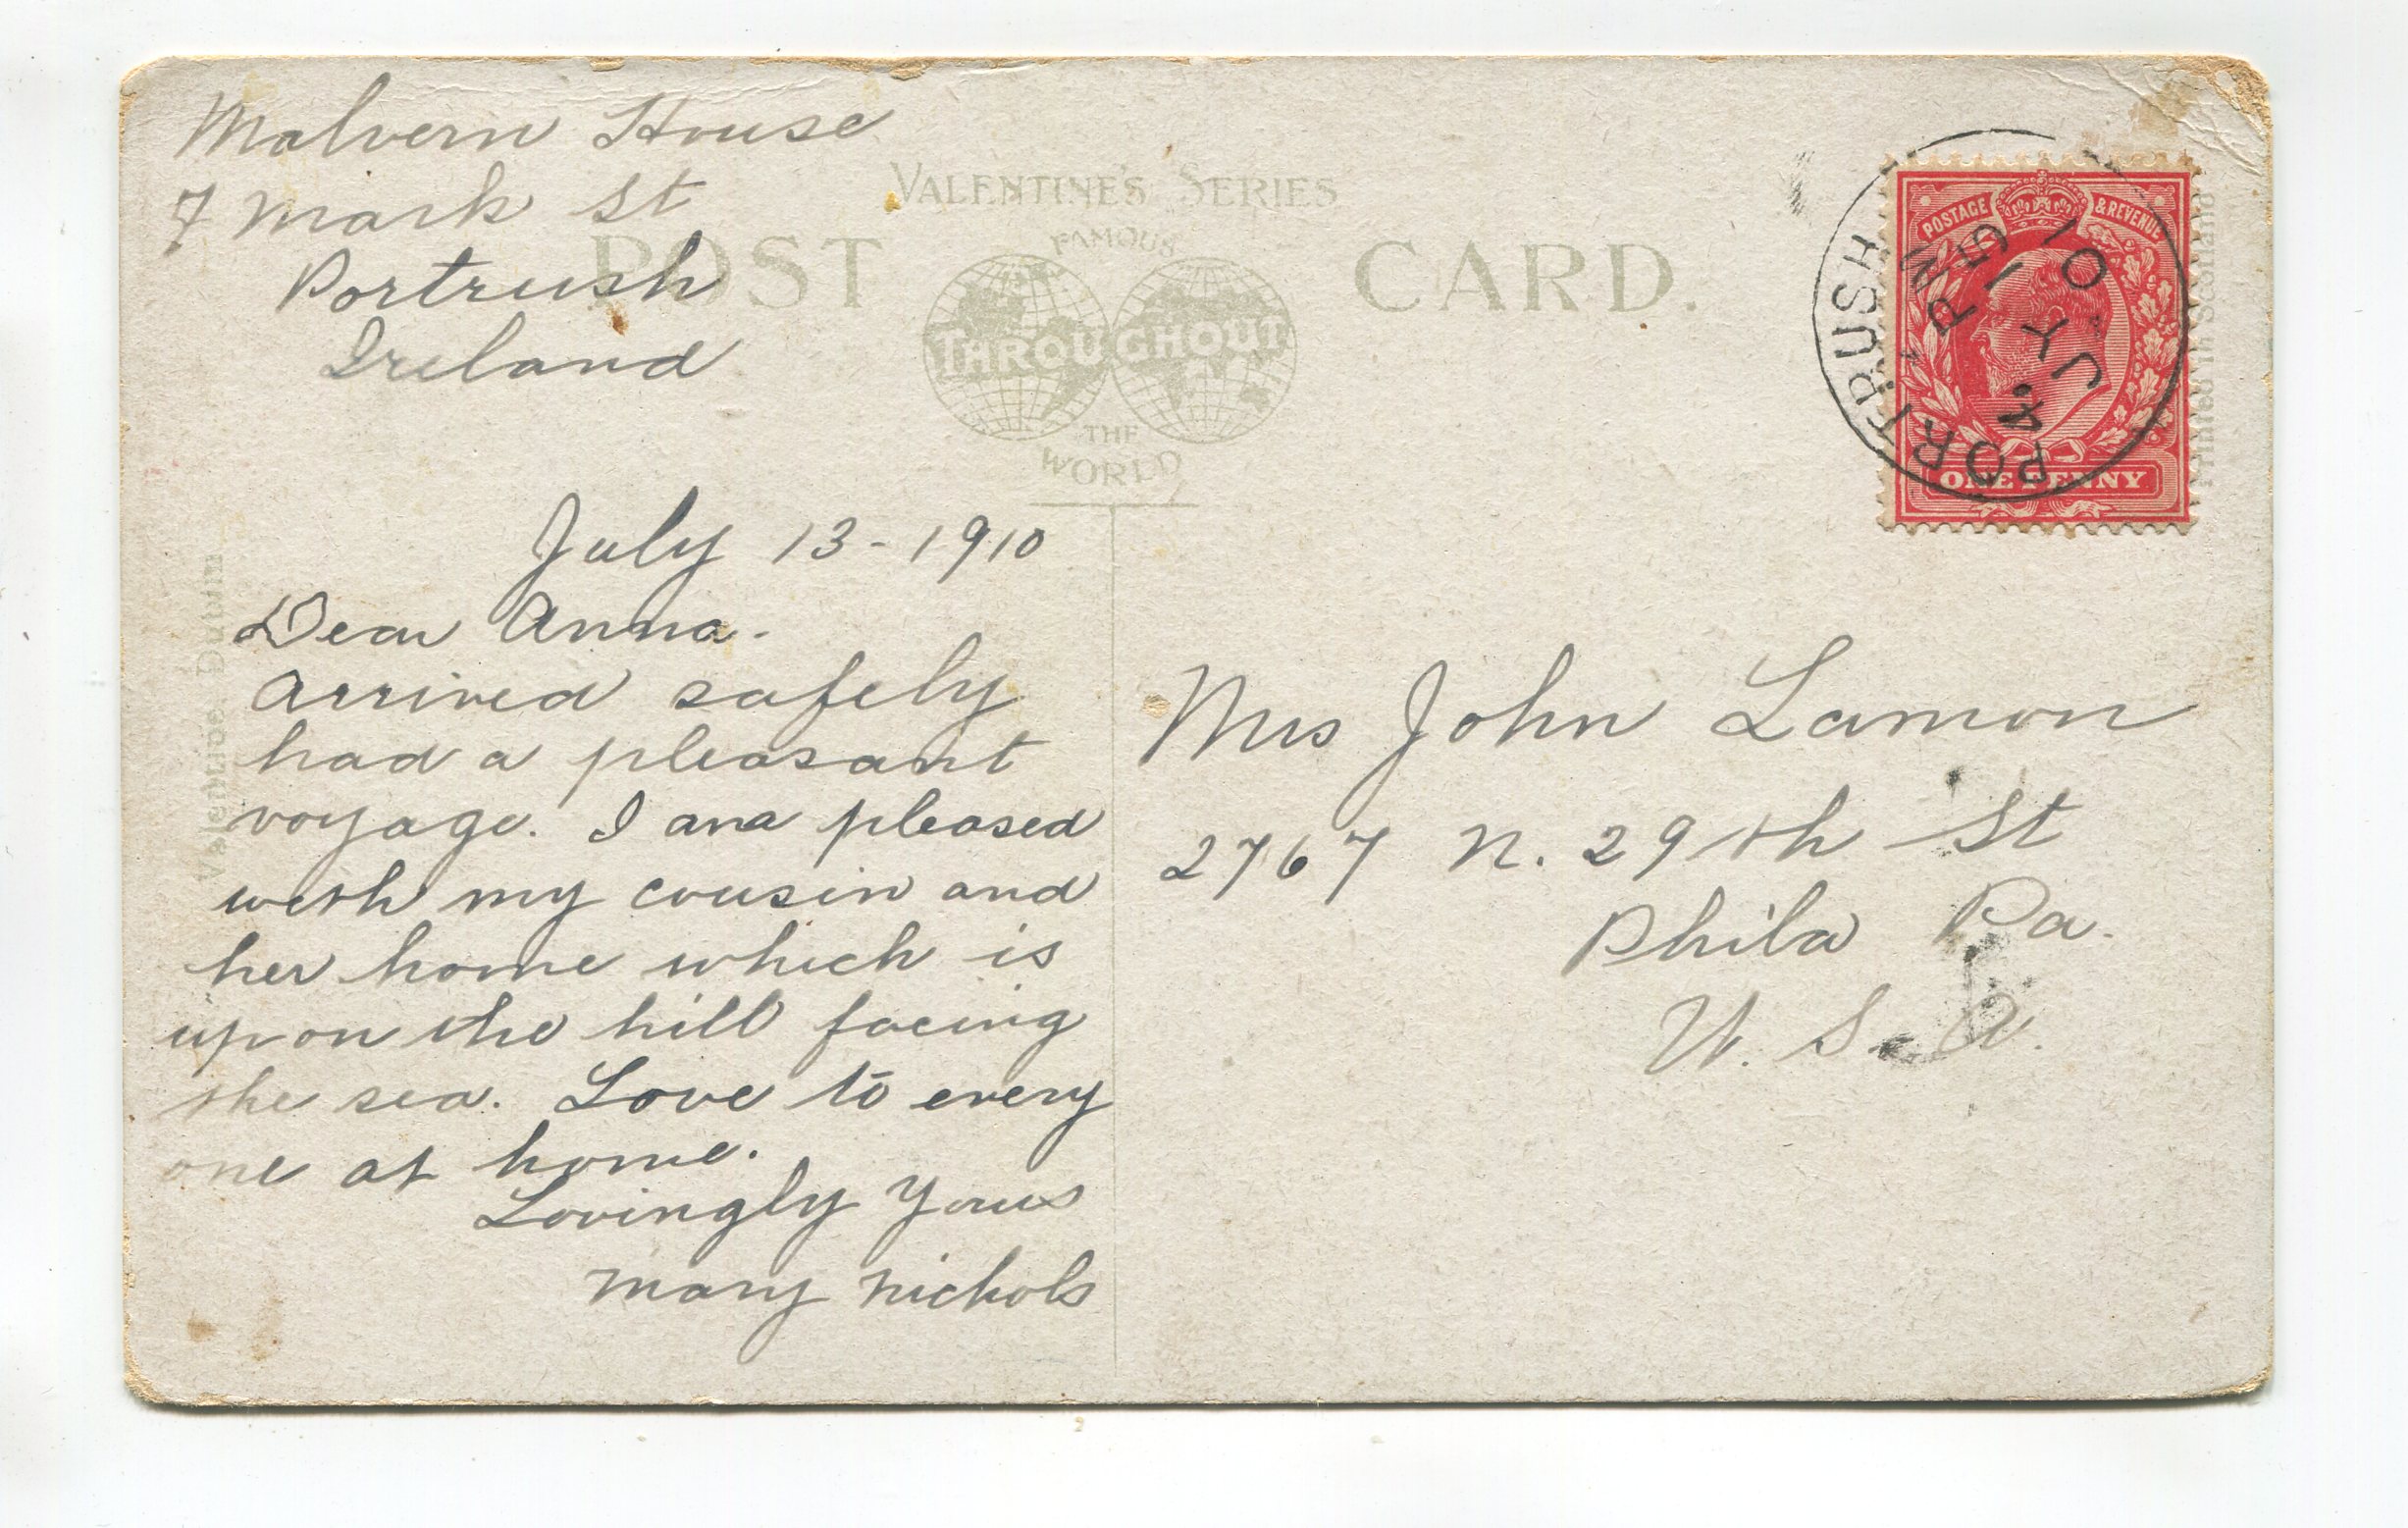 Malvern House
7 Mark St
Portrush
Ireland
VALENTINE'S SERIES
POST CARD.
FAMOUS
THROUGHOUT
THE
WORLD
July 13-1910
Dear Anna-
Arrived safely
had a pleasant
voyage. I am pleased
with my cousin and
her home which is
upon the hill facing
the sea. Love to every
one at home.
Lovingly yours
Mary Nichols
Mrs John Lamon
2767 N. 29th St
Phila Pa.
U. S. A.
POSTAGE & REVENUE
ONE PENNY
PORTRUSH
PM
JY 15
10
Valentine. Dublin
Printed in Scotland